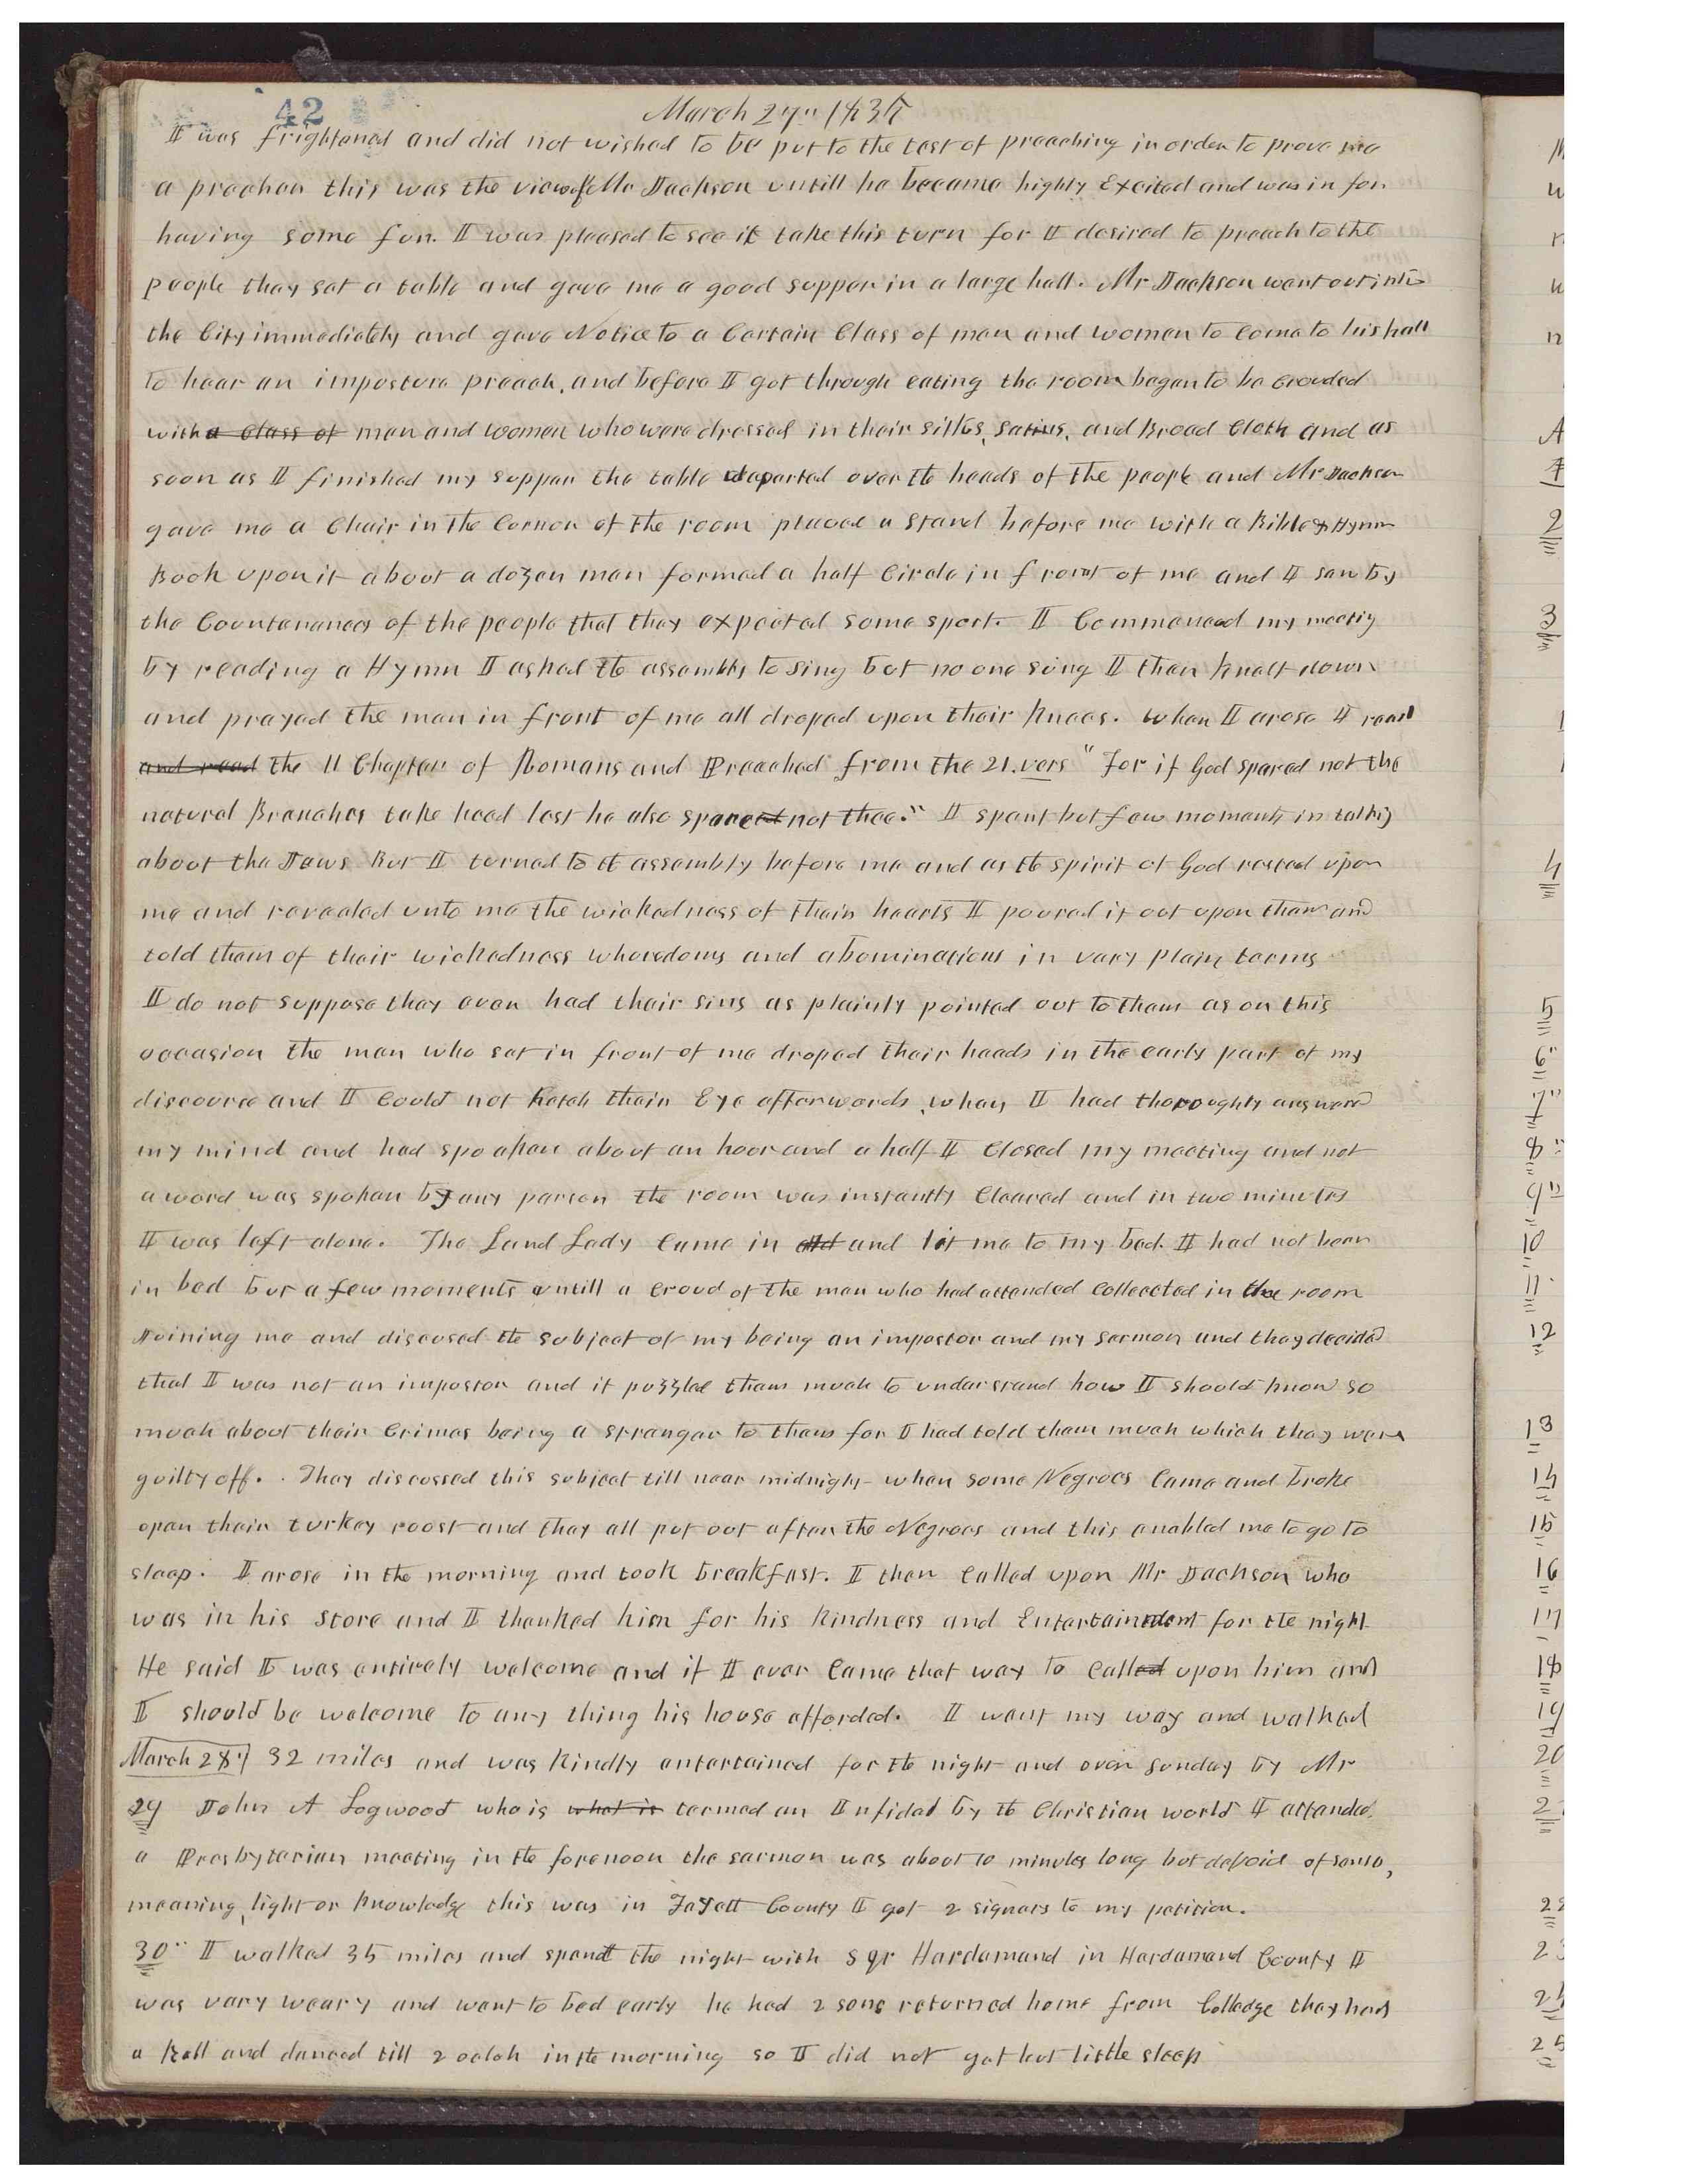 42
March 27" 1835
I was frightened and did not wished to be put to the test of preaching in order to prove me
a preacher this was the view of Mr Jackson untill he became highly Excited and was in for
having some fun. I was pleased to see it take this turn for I desired to preach to the
people they sat a table and gave me a good supper in a large hall. Mr Jackson went out into
the City immediately and gave Notice to a Certain Class of men and women to Come to his hall
to hear an imposture preach, and before I got through eating the room began to be Crouded
with a Class of men and women who were dressed in their silks, satins, and Broad Cloth and as
soon as I finished my supper the table departed over the heads of the people and Mr Jackson
gave me a Chair in the Corner of the room placed a stand before me with a Bible & Hymn
Book upon it about a dozen men formed a half Circle in front of me and I saw by
the Countenances of the people that they expected some sport. I Commenced my meetig
by reading a Hymn I asked the assembly to sing but no one sung I then knelt down
and prayed the men in front of me all droped upon their knees. when I arose I read
and read the 11 Chapter of Romans and Preached from the 21. vers "For if God spared not the
natural Branches take heed lest he also spareed not thee." I spent but few moments in talkig
about the Jews But I turned to the assembly before me and as the spirit of God rested upon
me and revealed unto me the wickedness of their hearts I poured it out upon them and
told them of their wickedness whoredoms and abominations in very plain terms
I do not suppose they ever had their sins as plainly pointed out to them as on this
occasion the men who sat in front of me droped their heads in the early part of my
discource and I Could not Ketch their Eye afterwords, when I had thoroughly answerd
my mind and had spoaken about an hour and a half I Closed my meeting and not
a word was spoken by any person the room was instantly Cleared and in two minutes
I was left alone. The Land Lady Came in and and lit me to my bed. I had not been
in bed but a few moments untill a Croud of the men who had attended Collected in the room
Joining me and discused the subject of my being an impostor and my sermon and they decided
that I was not an impostor and it puzzled them much to understand how I should know so
much about their Crimes being a stranger to them for I had told them much which they were
guilty off. They discussed this subject till near midnight when some Negroes Came and broke
open their turkey roost and they all put out after the Negroes and this enabled me to go to
sleep. I arose in the morning and took breakfast. I then Called upon Mr Jackson who
was in his store and I thanked him for his kindness and Entertainment for the night
He said I was entirely welcome and if I ever Came that way to Called upon him and
I should be welcome to any thing his house afforded. I went my way and walked
March 28" 32 miles and was Kindly entertained for the night and over sunday by Mr
29 John A Logwood who is what is termed an Infidel by the Christian world I attended
a Presbyterian meeting in the forenoon the sermon was about 10 minutes long but devoid of sense,
meaning, light or knowledge this was in Fayett County I got 2 signers to my petition.
30" I walked 35 miles and spendt the night with Sqr Hardamand in Hardamand County I
was very weary and went to bed early he had 2 sons returned home from Colledge they had
a Ball and danced till 2 oclok in the morning so I did not get but little sleep
2
3
4
5
6"
7"
8"
9"
10
11
12
13
14
15
16
17
18
19
20